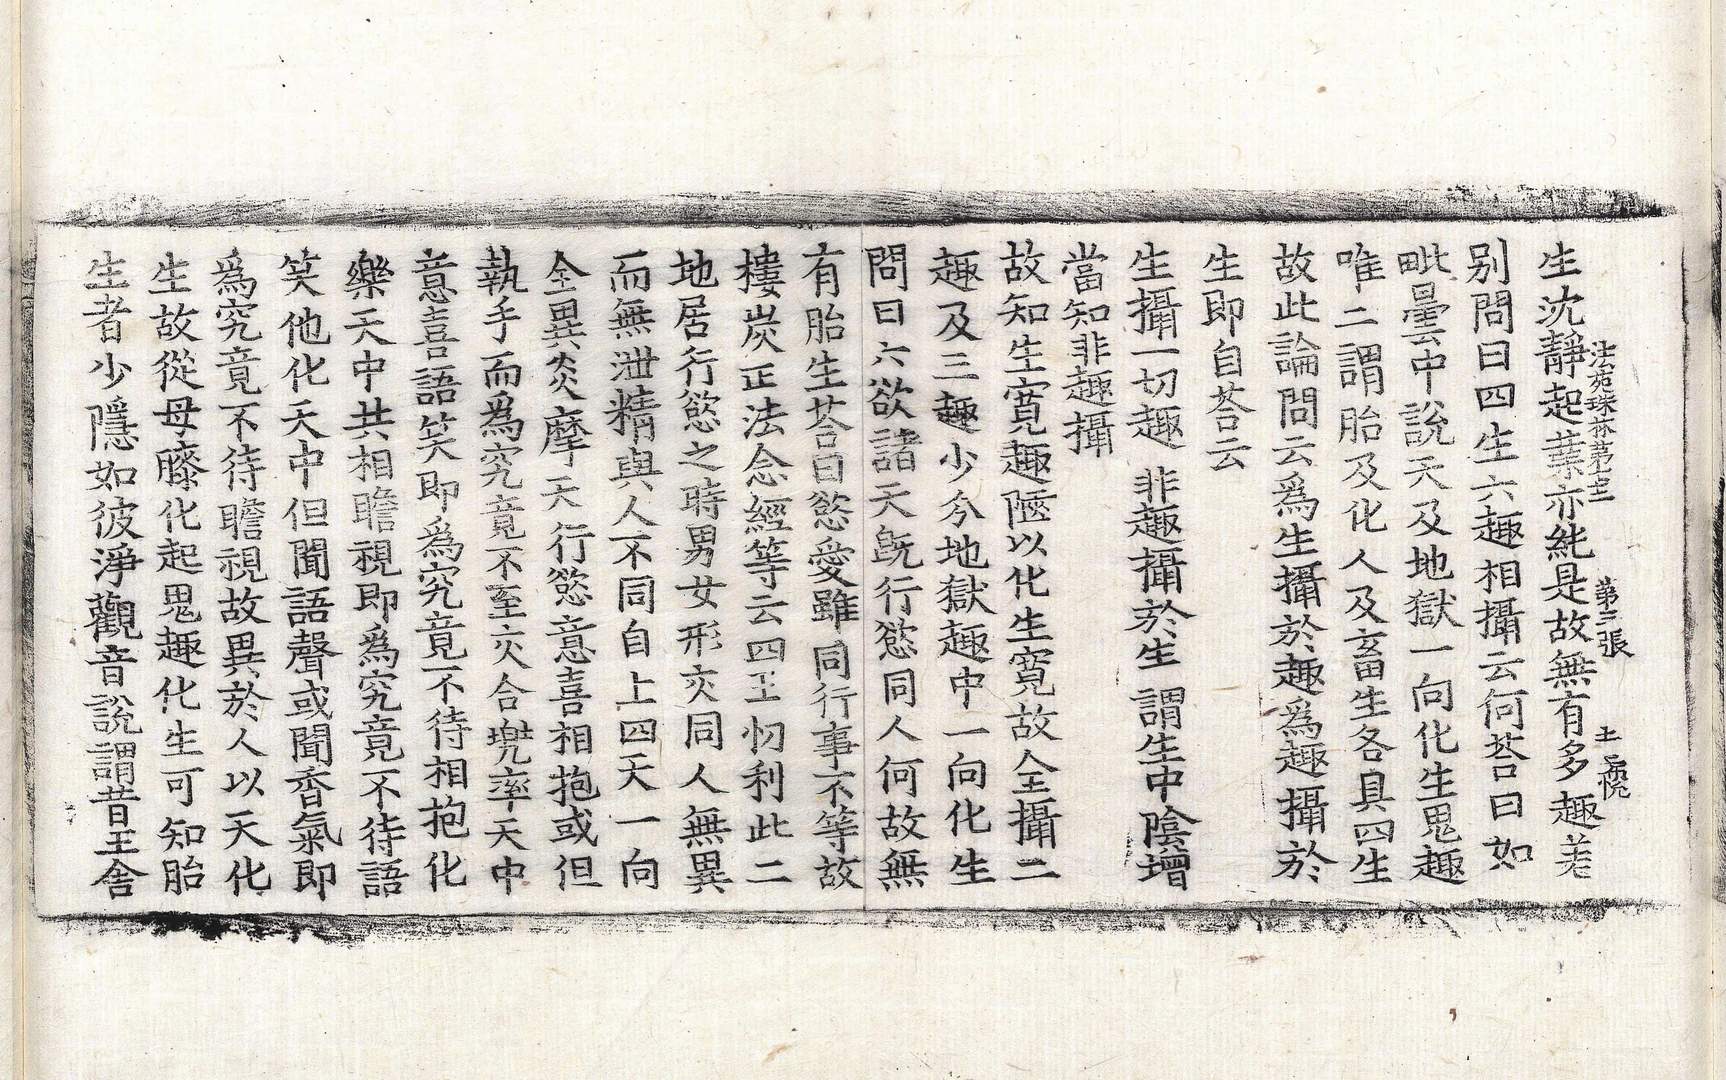 生沈靜起葉亦純是故無有多趣差
法苑珠林第七十 第三張 土 悅
別問曰四生六趣相攝云何荅曰如
毗曇中說天及地獄一向化生鬼趣
唯二謂胎及化人及畜生各具四生
故此論問云爲生攝於趣爲趣攝於
生即自荅云
生攝一切趣 非趣攝於生 謂生中陰增
當知非趣攝
故知生寬趣陿以化生寬故全攝二
趣及三趣少分地獄趣中一向化生
問曰六欲諸天旣行慾同人何故無
有胎生荅曰慾愛雖同行事不等故
樓炭正法念經等云四王忉利此二
地居行慾之時男女形交同人無異
而無泄精與人不同自上四天一向
全異炎摩天行慾意喜相抱或但
執手而爲究竟不至交合兠率天中
意喜語笑即爲究竟不待相抱化
樂天中共相瞻視即爲究竟不待語
笑他化天中但聞語聲或聞香氣即
爲究竟不待瞻視故異於人以天化
生故從母膝化起鬼趣化生可知胎
生者少隱如彼淨觀音說謂昔王舍